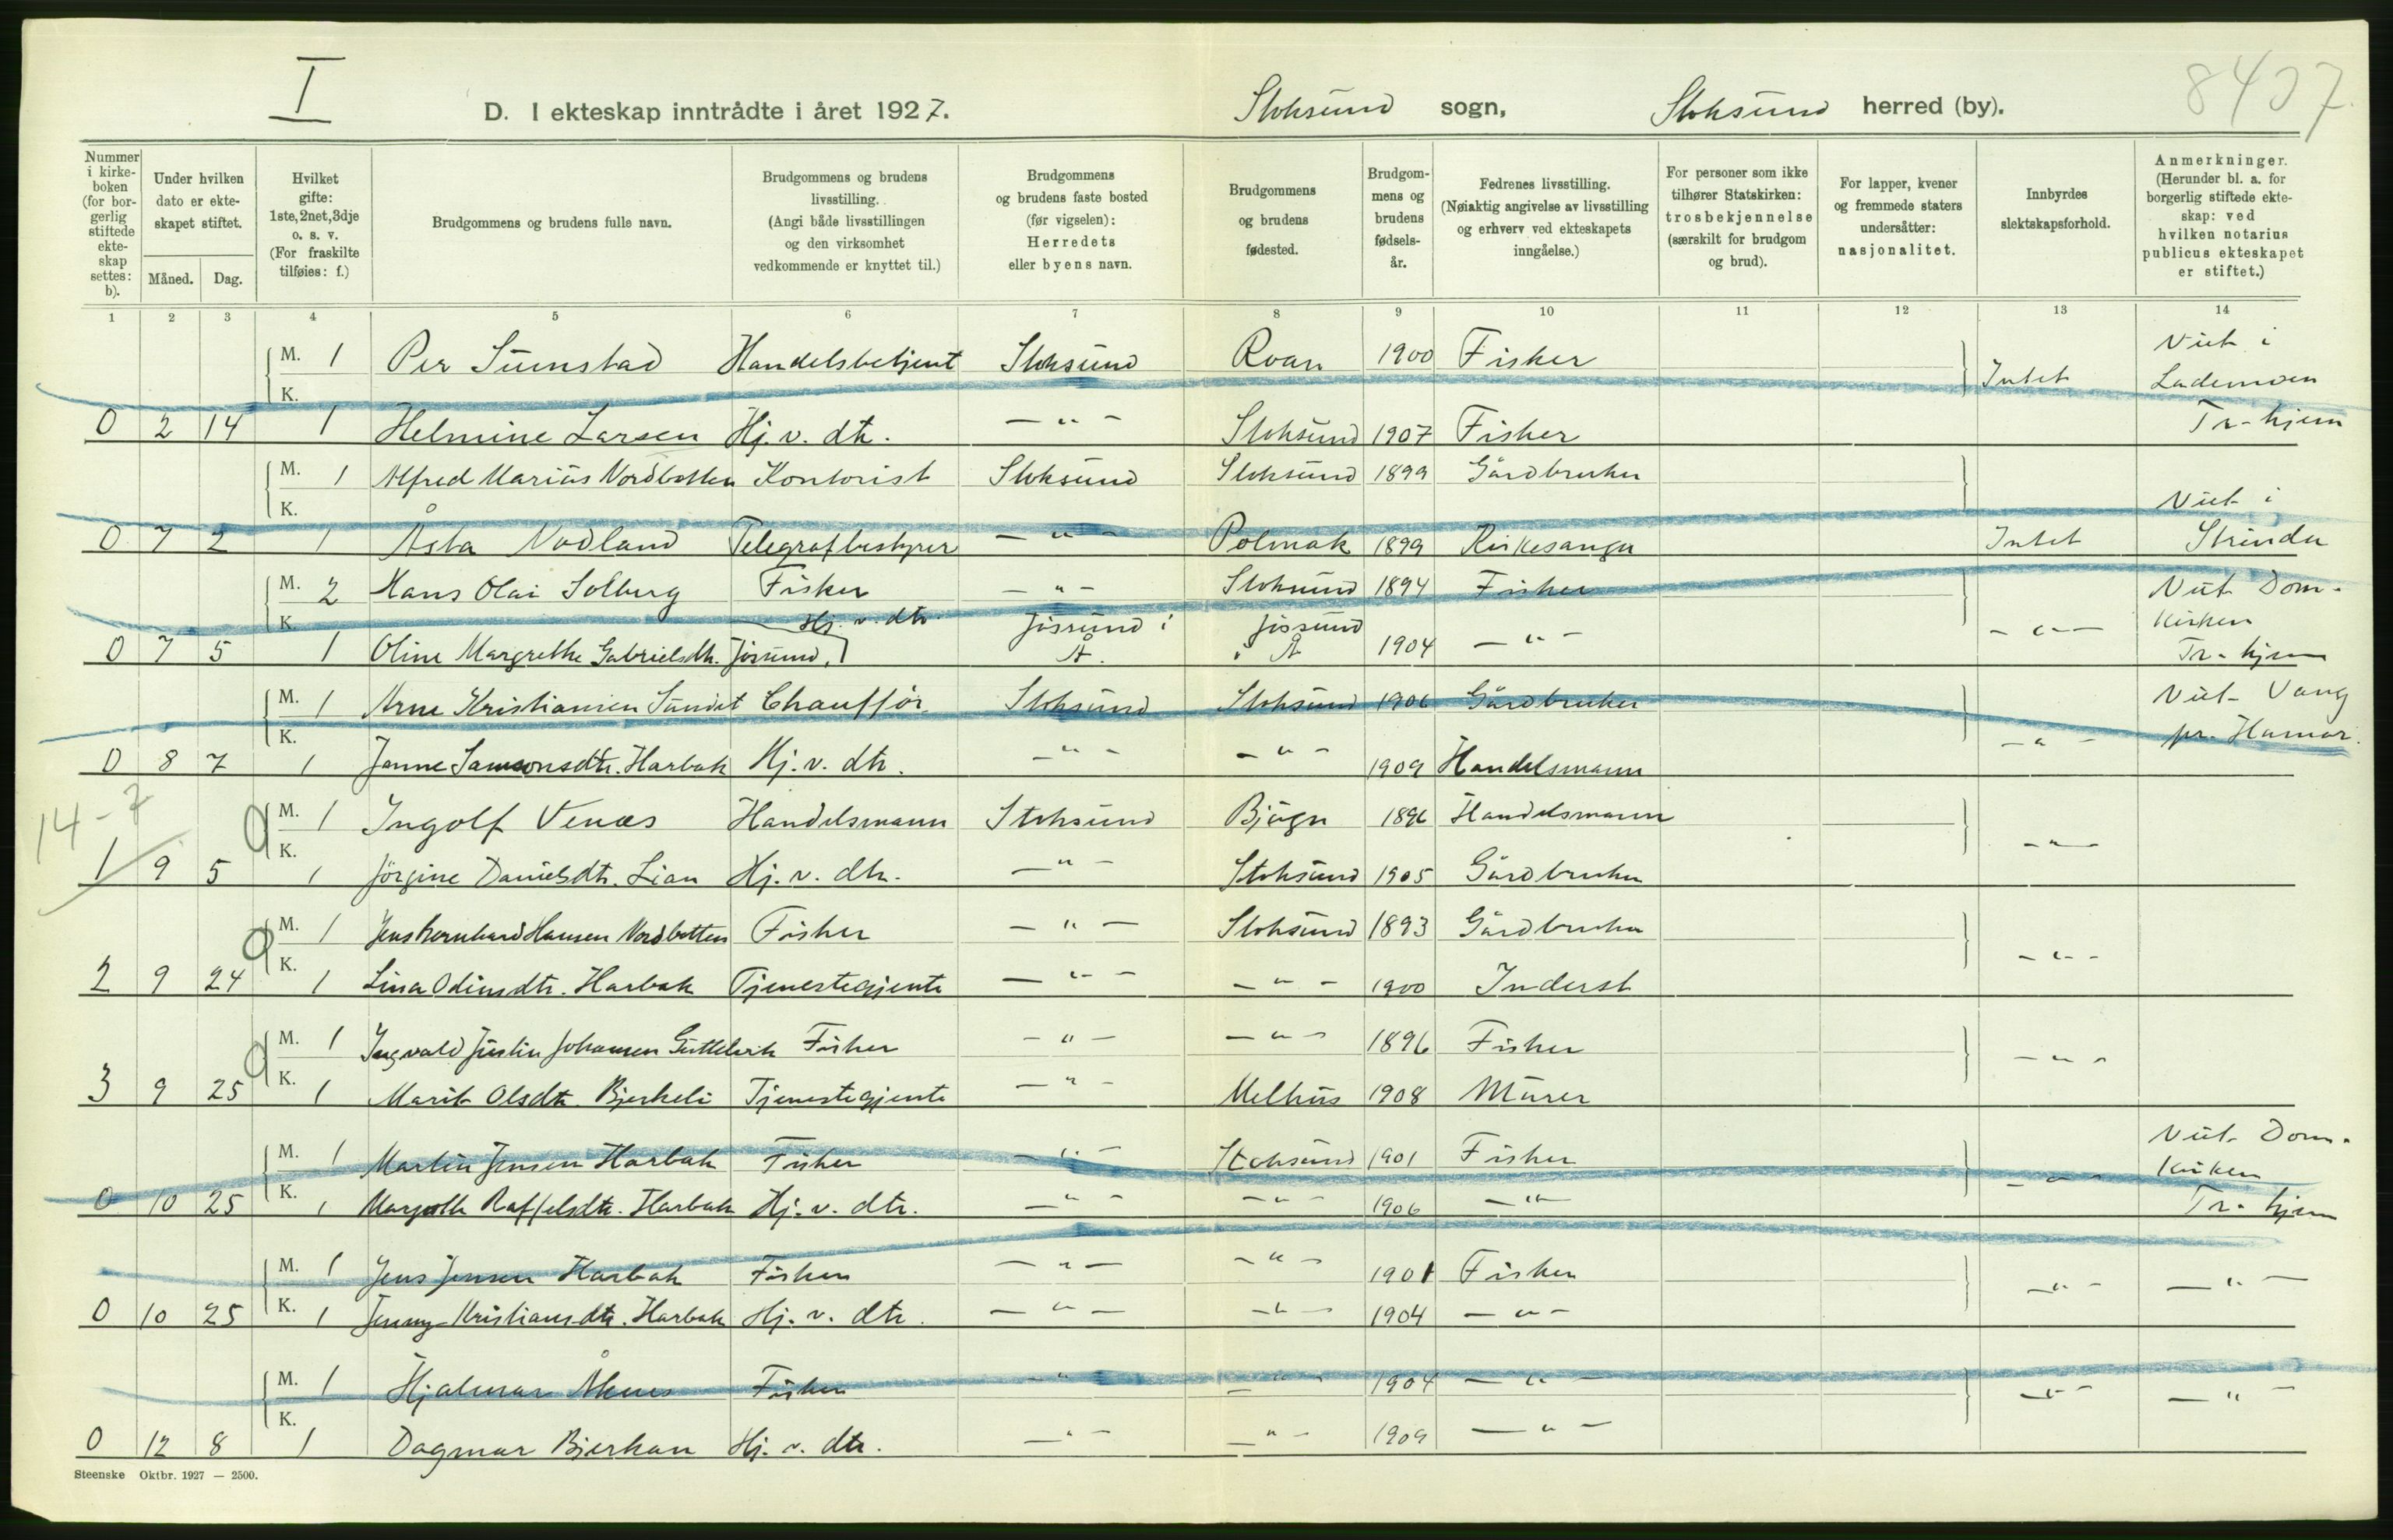 I
D. I ekteskap inntrådte i året 1927. Stoksund sogn, Stoksund herred (by). 8407
Nummer i kirkeboken (for borgerlig stiftede ekteskap settes: b).
Under hvilken dato er ekteskapet stiftet.
Måned. Dag.
Hvilket gifte: 1ste, 2net, 3dje o. s. v. (For fraskilte tilføies: f.)
Brudgommens og brudens fulle navn.
Brudgommens og brudens livsstilling. (Angi både livsstillingen og den virksomhet vedkommende er knyttet til.)
Brudgommens og brudens faste bosted (før vigselen): Herredets eller byens navn.
Brudgommens og brudens fødested.
Brudgommens og brudens fødselsår.
Fedrenes livsstilling. (Nøiaktig angivelse av livsstilling og erhverv ved ekteskapets inngåelse.)
For personer som ikke tilhører Statskirken: trosbekjennelse (særskilt for brudgom og brud).
For lapper, kvener og fremmede staters undersåtter: nasjonalitet.
Innbyrdes slektskapsforhold.
Anmerkninger. (Herunder bl. a. for borgerlig stiftede ekteskap: ved hvilken notarius publicus ekteskapet er stiftet.)
1 2 3 4 5 6 7 8 9 10 11 12 13 14
M. 1 Per Sumstad Handelsbetjent Stoksund Roan 1900 Fisker Intet Viet i Lademoen Tr-hjem
K.
0 2 14 1 Helmine Larsen Hj. v. dtr. — " — Stoksund 1907 Fisker
M. 1 Alfred Mariùs Nordbotten Kontorist Stoksund Stoksund 1899 Gårdbruker
K.
0 7 2 1 Åsta Nodland Telegrafbestyrer — " — Polmak 1899 Kirkesanger Intet Viet i Strinda
M. 2 Hans Olai Solberg Fisker — " — Stoksund 1894 Fisker Viet Dom-kirken Tr-hjem
K.
0 7 5 1 Oline Margrethe Gabrielsdtr. Jøssund. Hj. v. dtr. Jøssund i Å. Jøssund i Å 1904 — " — — " —
M. 1 Arne Kristiansen Sundet Chauffør Stoksund Stoksund 1906 Gårdbruker Viet Vang pr. Hamar.
K.
0 8 7 1 Janne Samsonsdtr. Harbak Hj. v. dtr. — " — — " — 1909 Handelsmann — " —
14-7
M. 1 Ingolf Venæs Handelsmann Stoksund Bjugn 1896 Handelsmann
K.
1 9 5 1 Jörgine Danielsdtr. Lian Hj. v. dtr. — " — Stoksund 1905 Gårdbruker — " —
M. 1 Jens Bernhard Hansen Nordbotten Fisker — " — Stoksund 1893 Gårdbruker
K.
2 9 24 1 Lina Odinsdtr. Harbak Tjenestegjente — " — — " — 1900 Inderst — " —
M. 1 Ingvald Justin Johansen Fisker — " — — " — 1896 Fisker
K.
3 9 25 1 Marit Olsdtr. Bjerkeli Tjenestegjente — " — Melhus 1908 Murer — " —
M. 1 Martin Jensen Harbak Fisker — " — Stoksund 1901 Fisker Viet Dom-kirken Tr-hjem
K.
0 10 25 1 Raffelsdtr. Harbak Hj. v. dtr. — " — — " — 1906 — " — — " —
M. 1 Jens Jensen Harbak Fisker — " — — " — 1901 Fisker
K.
0 10 25 1 Jenny Kristiansdtr. Harbak Hj. v. dtr. — " — — " — 1904 — " — — " — — " —
M. 1 Hjalmar Fisker — " — — " — 1904 — " — — " — — " —
K.
0 12 8 1 Dagmar Bjerkan Hj. v. dtr. — " — — " — 1909 — " —
Steenske Oktbr. 1927 — 2500.